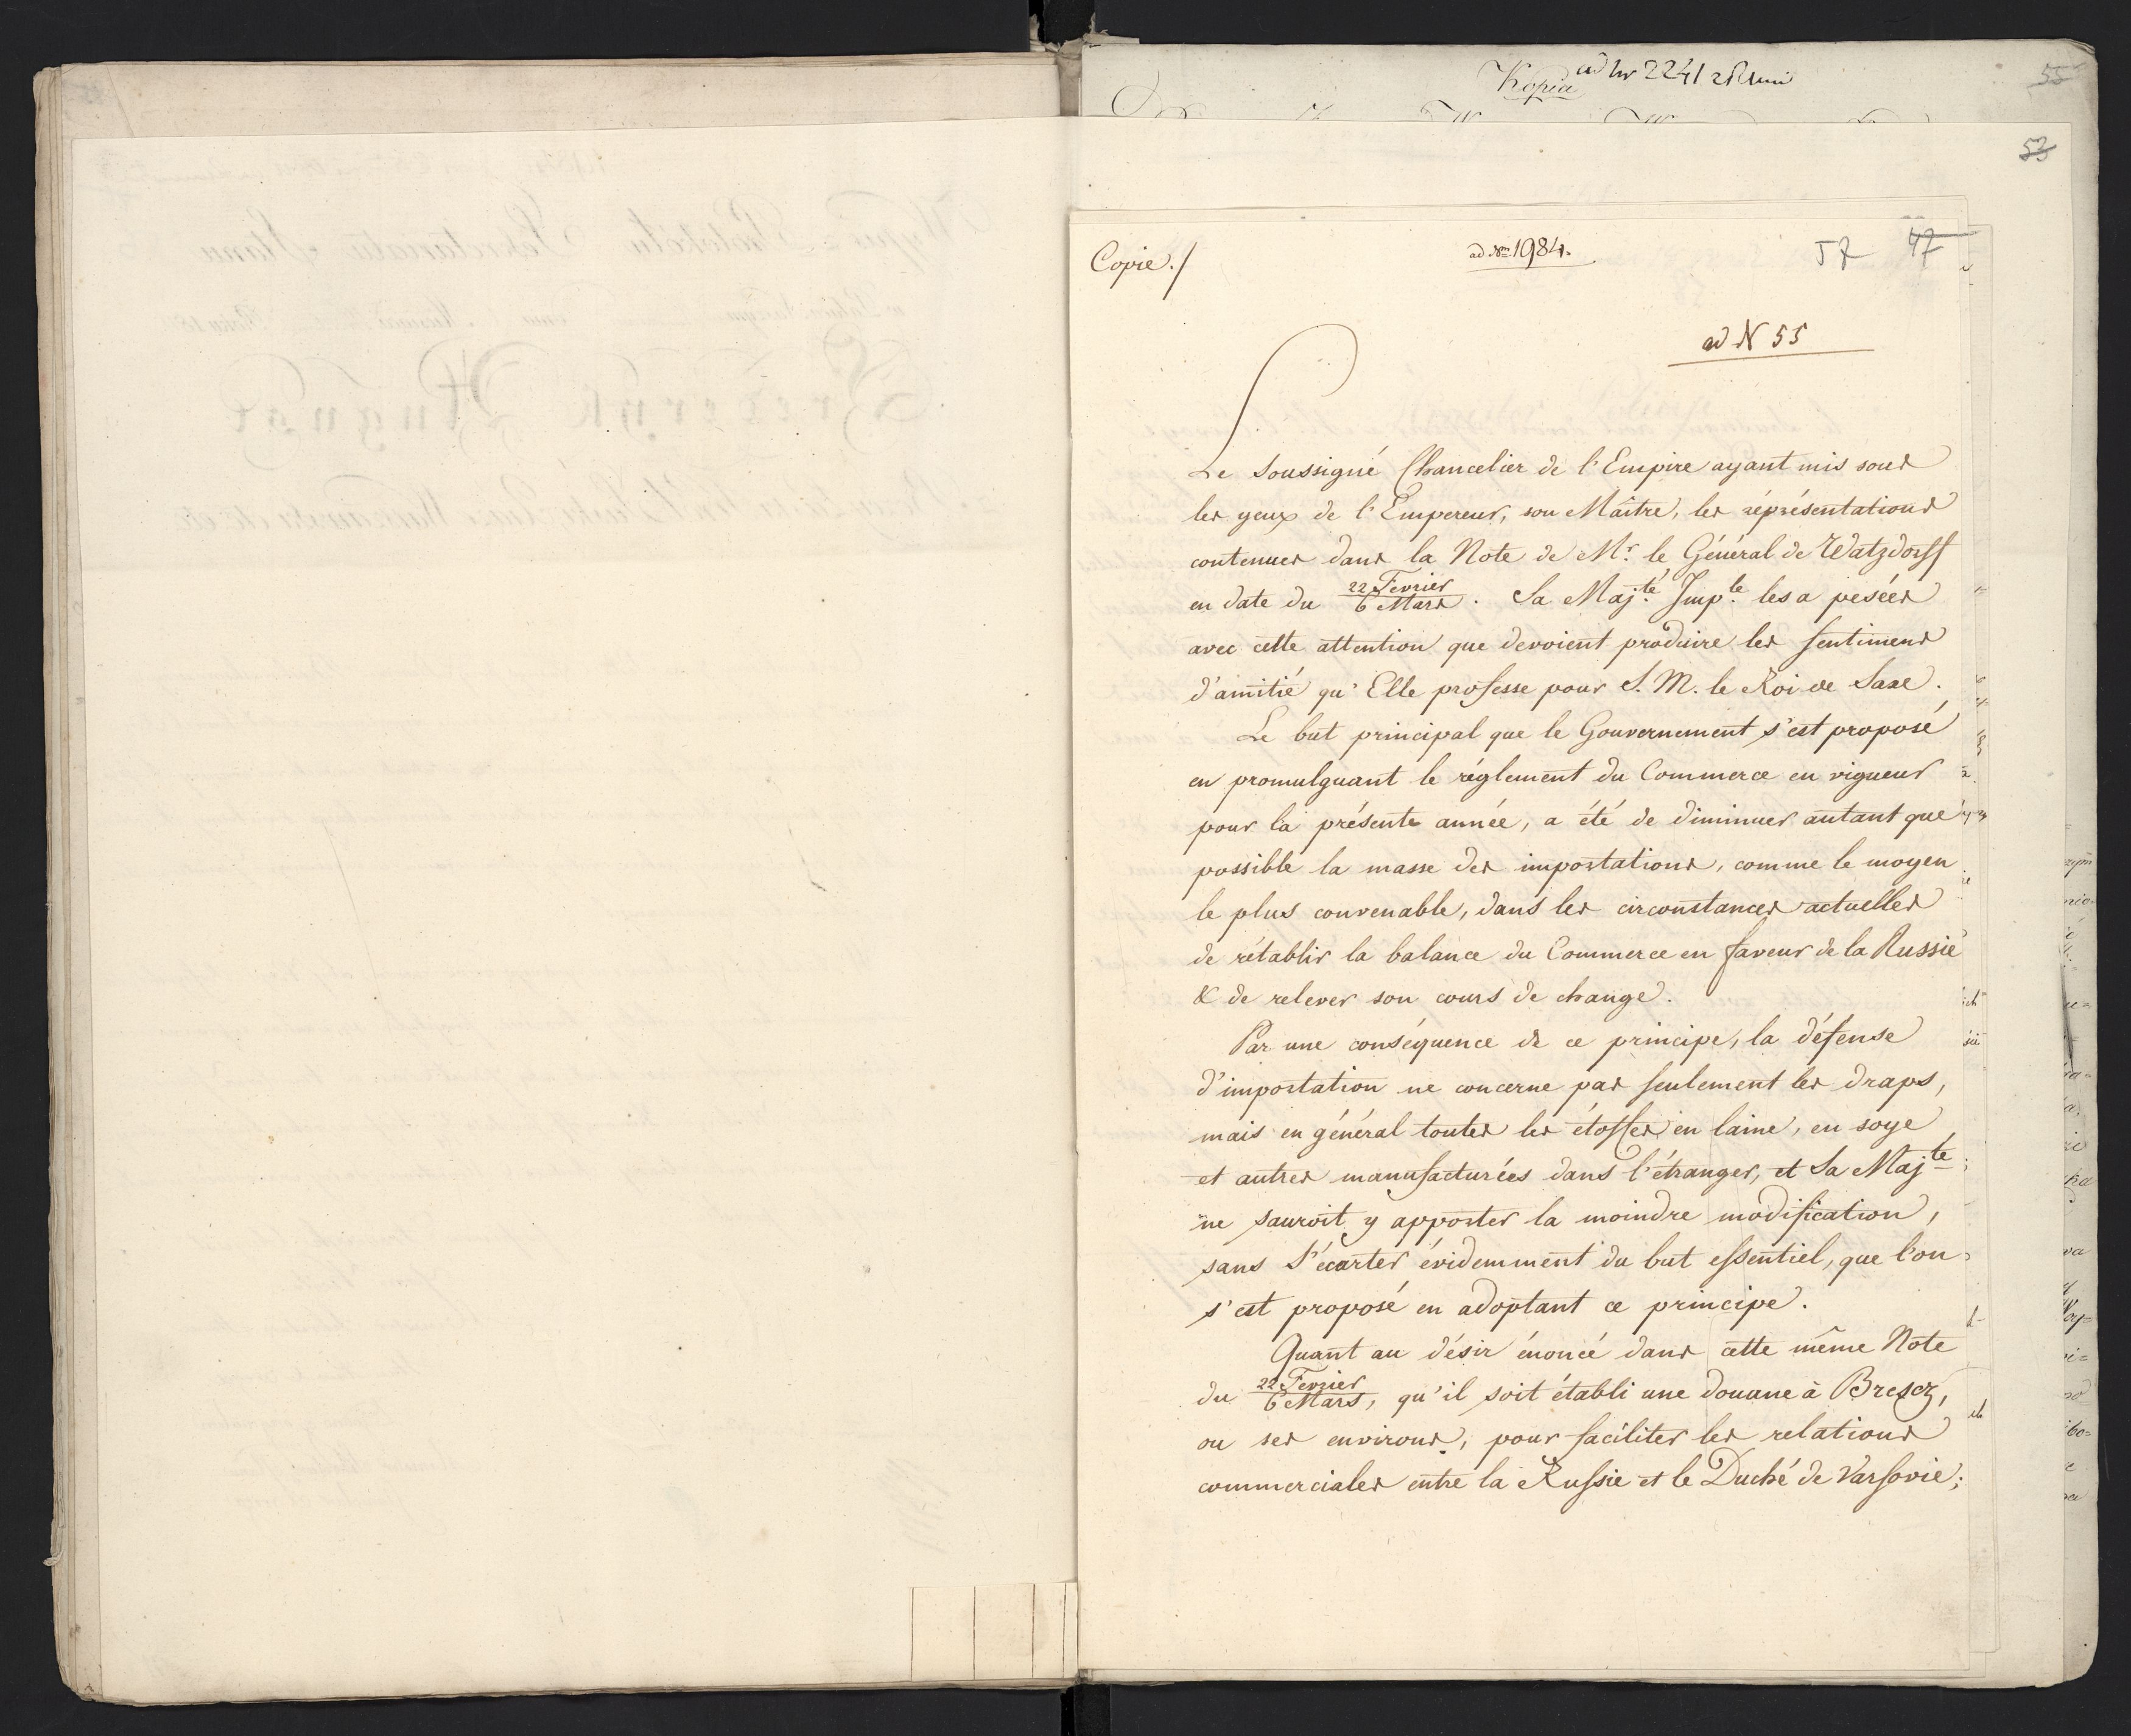 Kopia ad Nr 2241
55
53
Copie./
ad Nrm 1984.
57 47
ad N 55
Le Soussigné Chancelier de l'Empire ayant mis sous
les yeux de l'Empereur, son Maître, les réprésentations
contenues dans la Note de Mr. le Général de Watzdorff
en date du 22 Fevrier/6 Mars. Sa Maj:té Imp:le les a pesées
avec cette attention que devoient produire les sentimens
d'amitié qu'Elle professe pour S. M. le Roi de Saxe.
Le but principal que le Gouvernement s'est proposé
en promulguant le réglement du Commerce en vigueur
pour la présente année, a été de diminuer autant que
possible la masse des importations, comme le moyen
le plus convenable, dans les circonstances actuelles
de rétablir la balance du Commerce en faveur de la Russie
& de relever son cours de change.
Par une conséquence de ce principe, la défense
d'importation ne concerne pas seulement les draps,
mais en général toutes les étoffes en laine, en soye
et autres manufacturées dans l'étranger, et Sa Maj:te
ne sauroit y apporter la moindre modification,
sans s'écarter évidemment du but essentiel, que l'on
s'est proposé en adoptant ce principe.
Quant au désir énoncé dans cette même Note
du 22 Fevrier/6 Mars, qu'il soit établi une douane à Bresez,
ou ses environs, pour faciliter les relations
commerciales entre la Russie et le Duché de Varsovie;